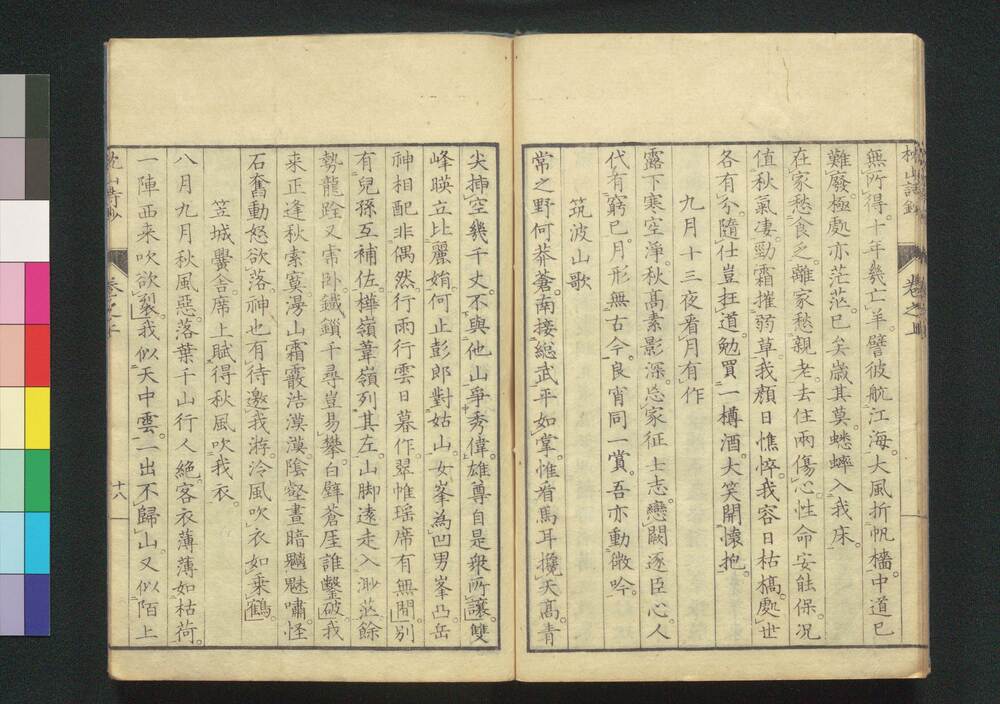 枕山詩鈔
卷之中
無所得。十年幾亡羊。譬彼航江海。大風折帆檣。中道已
難廢。極處亦茫茫。已矣歲其莫。蟋蟀入我床。
在家愁食乏。離家愁親老。去住兩傷心。性命安能保。況
值秋氣凄。勁霜摧弱草。我顏日憔悴。我容日枯槁。處世
各有分。隨仕豈枉道。勉買一樽酒。大笑開懷抱。
九月十三夜看月有作
露下寒空淨。秋高素影深。忘家征士志。戀闕逐臣心。人
代有窮已。月形無古今。良宵同一賞。吾亦動微吟。
筑波山歌
常之野何莽蒼。南接総武平如掌。惟看馬耳攙天高。青
尖挿空幾千丈。不與他山爭秀偉。雄尊自是衆所讓。雙
峰暎立比麗娟。何止彭郎對姑山。女峯為凹男峯凸。岳
神相配非偶然。行雨行雲日暮作。翠帷瑶席有無間。別
有兒孫互補佐。樺嶺葦嶺列其左。山脚遠走入渺茫。餘
勢龍跧又虎卧。鐵鎖千尋豈易攀。白壁蒼厓誰鑿破。我
来正逢秋索寞。湯山霜霰浩漠漠。陰壑晝暗魑魅嘯。怪
石奮動怒欲落。神也有待邀我游。泠風吹衣如乗鶴。
笠城黌舍席上賦得秋風吹我衣
八月九月秋風惡。落葉千山行人絶。客衣薄薄如枯荷。
一陣西来吹欲裂。我似天中雲。一出不歸山。又似陌上
枕山詩鈔
卷之上
十八